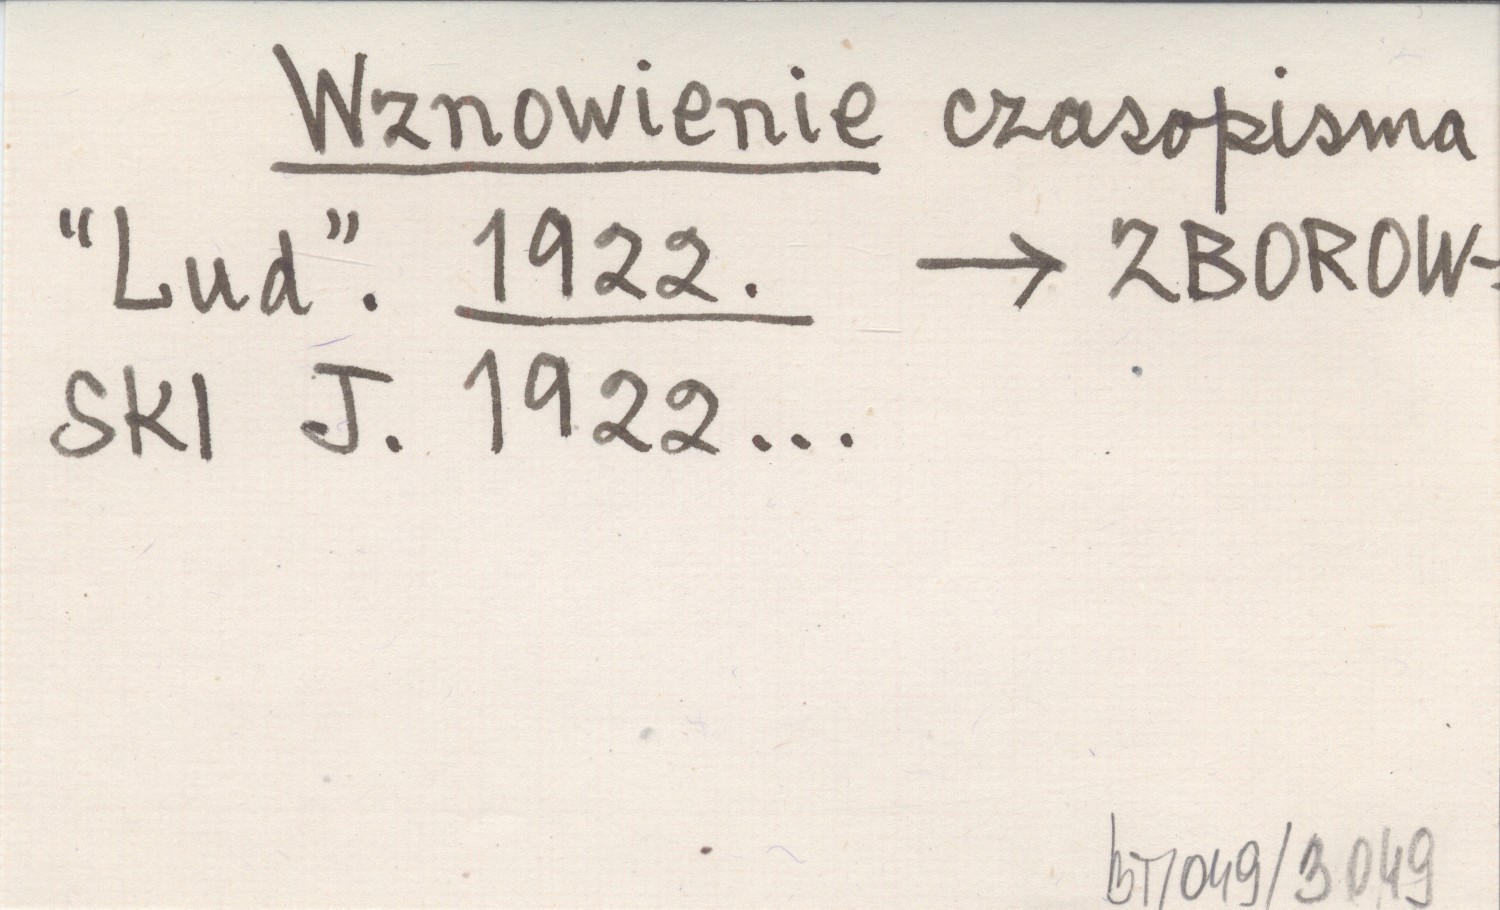 Wznowienie czasopisma
"Lud". 1922. → ZBOROW-
SKI J. 1922...
bT/049/3049